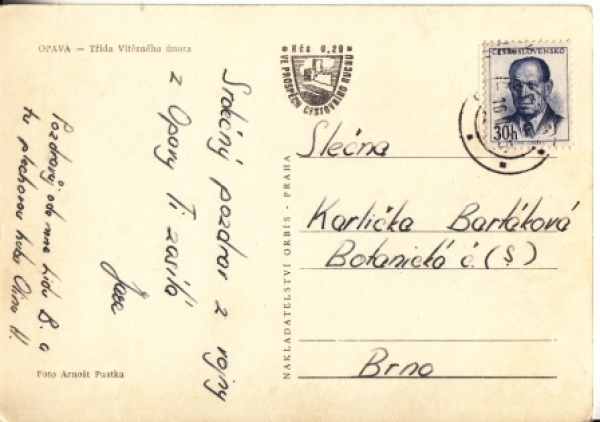 OPAVA — Třída Vítězného února
Kčs 0,20
VE PROSPĚCH CESTOVNÍHO RUCHU
ČESKOSLOVENSKO
30h
Srdečný pozdrav z vojny
z Opavy Ti zasílá
Pozdravuj ode mne
Slečna
Karlička Bartáková
Botanická č. (5)
Brno
NAKLADATELSTVÍ ORBIS - PRAHA
Foto Arnošt Pustka